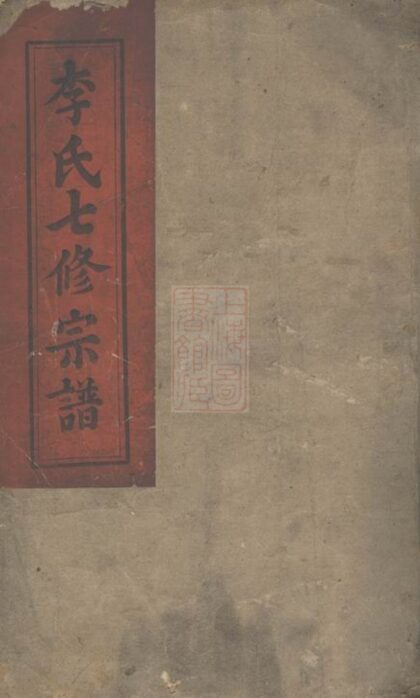 李氏七修宗譜
上海圖
書館藏